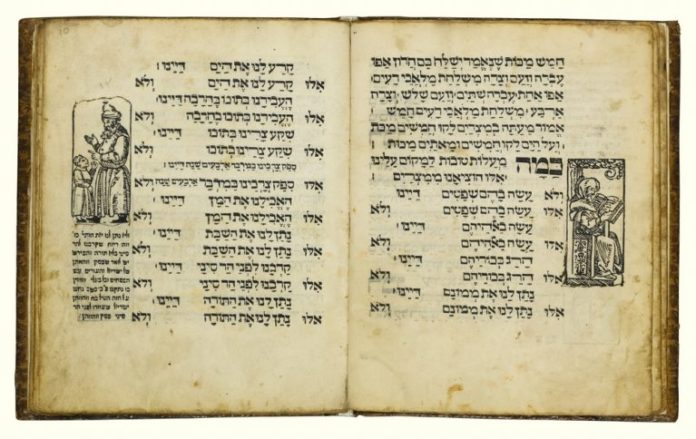 חמש מכות שנאמר ישלח בם חרון אפו
עברה וזעם וצרה משלחת מלאכי רעים:
אפו אחת עברה שתים וזעם שלש וצרה
ארבע משלחת מלאכי רעים חמש
אמור מעתה במצרים לקו חמשים מכות
ועל הים לקו חמשים ומאתים מכות:
כמה מעלות טובות למקום עלינו
אלו הוציאנו ממצרים
ולא עשה בהם שפטים דיינו:
אלו עשה בהם שפטים ולא
עשה באלהיהם דיינו:
אלו עשה באלהיהם ולא
הרג בכוריהם דיינו:
אלו הרג בכוריהם ולא
נתן לנו את ממונם דיינו:
אלו נתן לנו את ממונם ולא
קרע לנו את הים דיינו:
אלו קרע לנו את הים ולא
העבירנו בתוכו בחרבה דיינו:
אלו העבירנו בתוכו בחרבה ולא
שקע צרינו בתוכו דיינו:
אלו שקע צרינו בתוכו ולא
ספק צרכינו במדבר ארבעים שנה דיינו:
אלו ספק צרכינו במדבר ארבעים שנה ולא
האכילנו את המן דיינו:
אלו האכילנו את המן ולא
נתן לנו את השבת דיינו:
אלו נתן לנו את השבת ולא
קרבנו לפני הר סיני דיינו:
אלו קרבנו לפני הר סיני ולא
נתן לנו את התורה דיינו:
אלו נתן לנו את התורה ולא